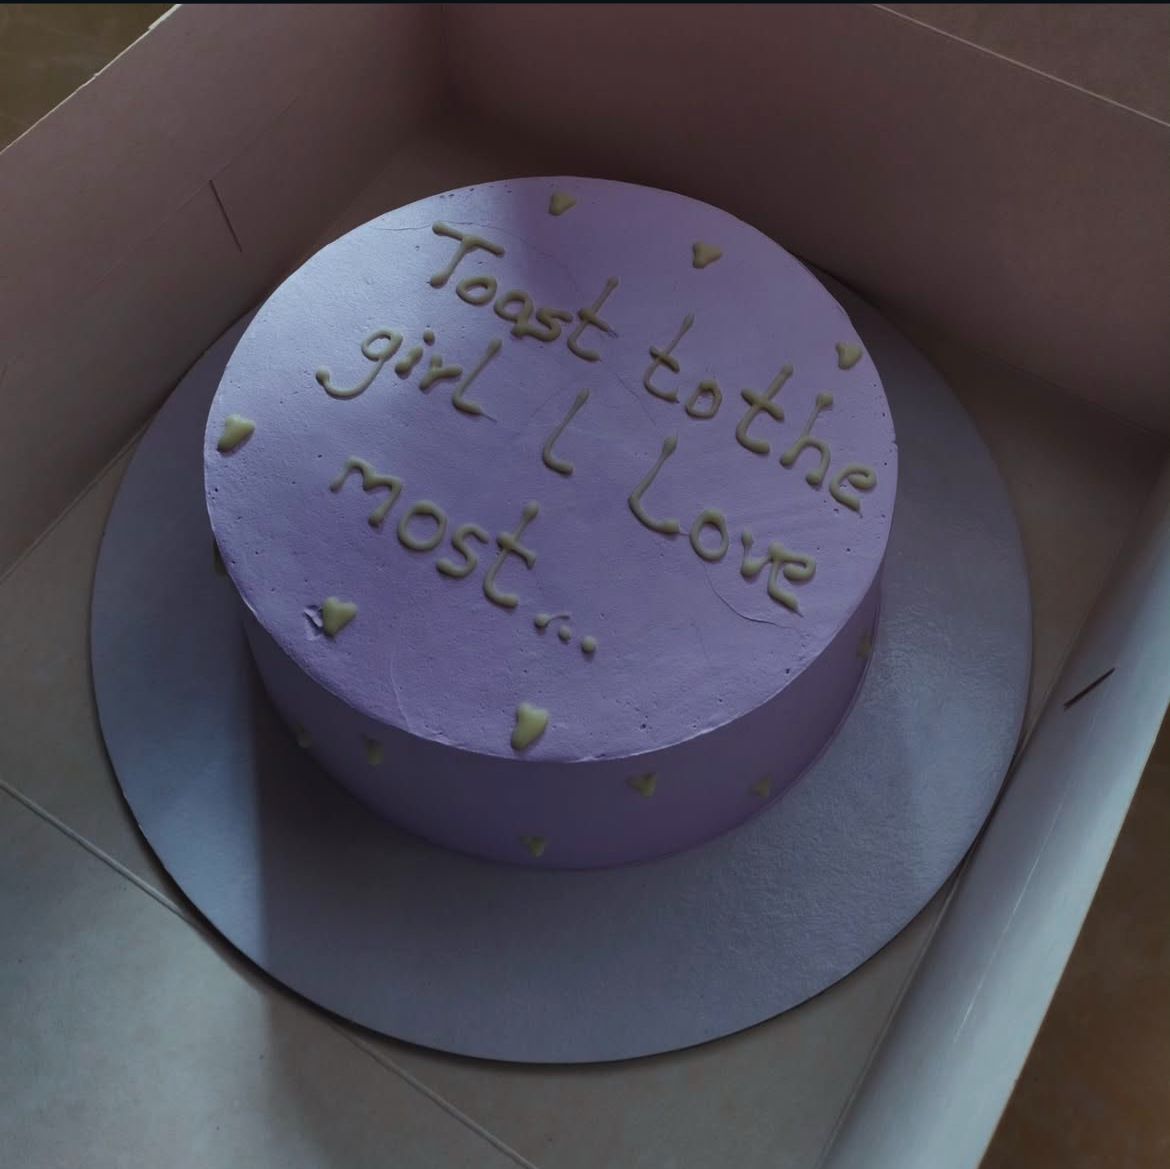 Toast to the
girl I Love
most...